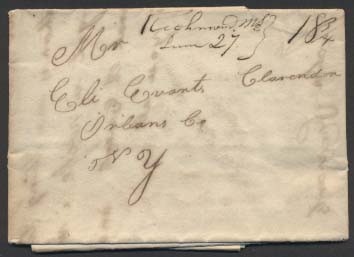 Richmond Ms
June 27
18¾
Mr
Eli Evarts, Clarendon
Orleans Co
N Y